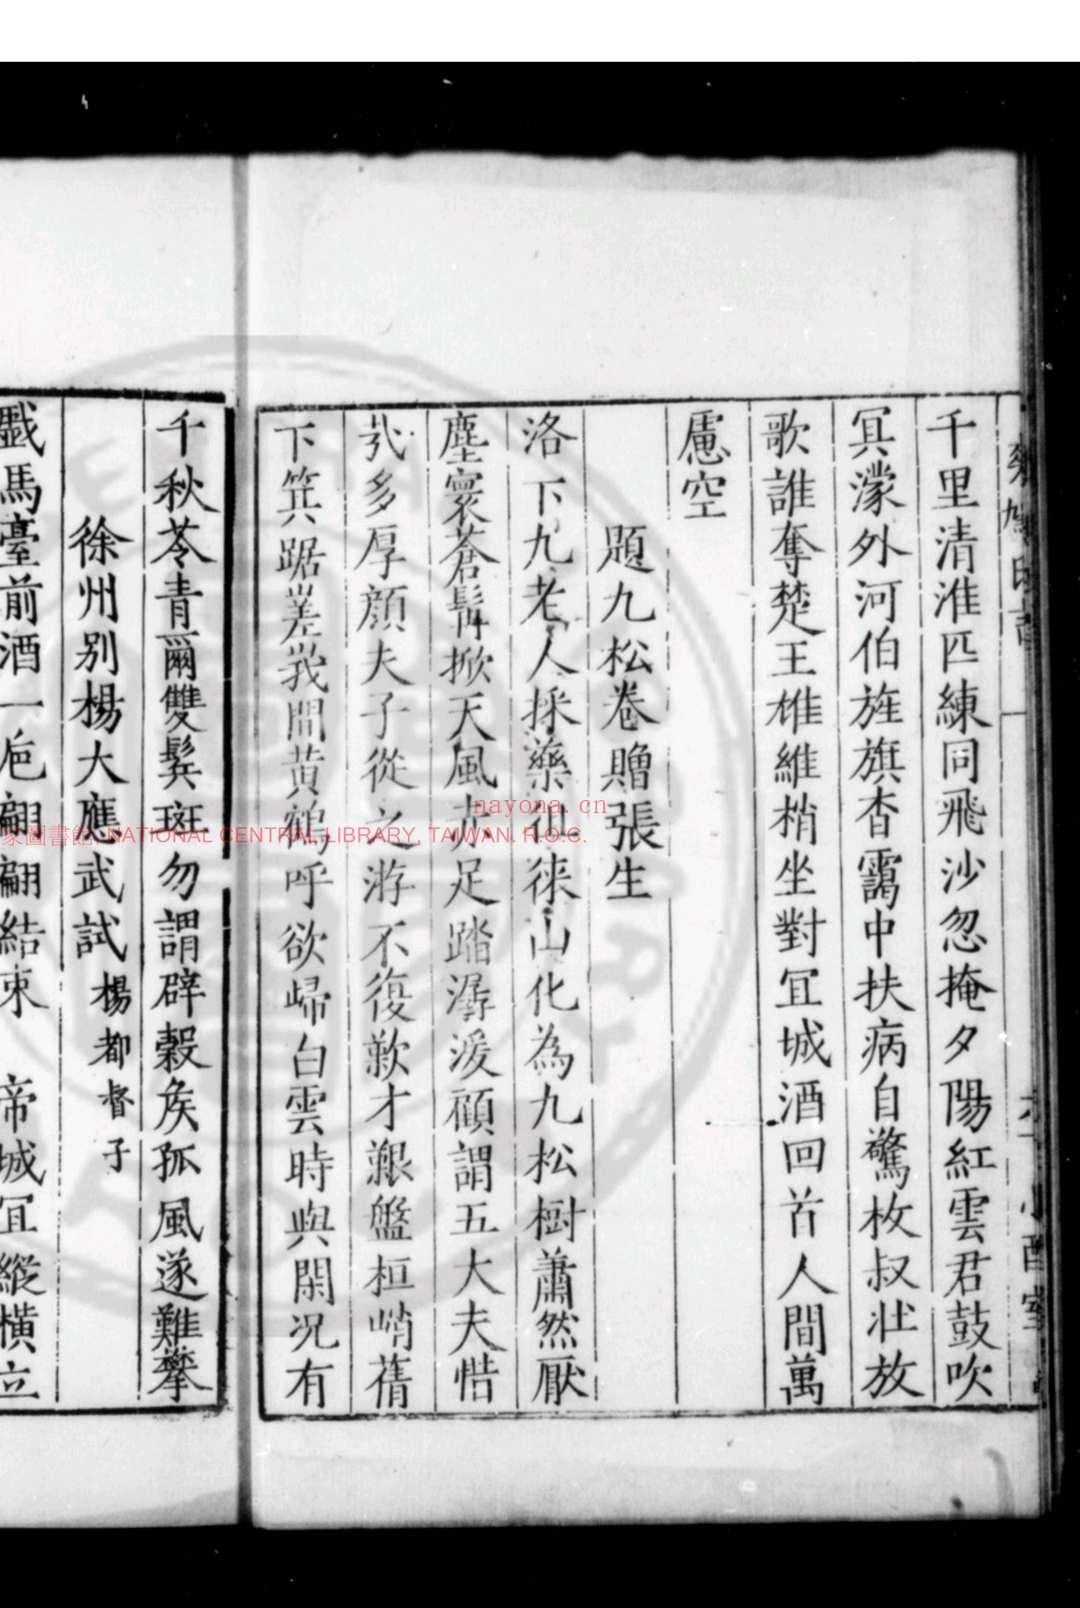 千里清淮匹練同飛沙忽掩夕陽紅雲君鼓吹
冥濛外河伯旌旗杳靄中扶病自驚枚叔壯放
歌誰奪楚王雄維梢坐對冝城酒回首人間萬
慮空
題九松卷贈張生
洛下九老人採藥徂徠山化為九松樹蕭然厭
塵寰蒼髯掀天風赤足踏潺湲顧謂五大夫惜
㢤多厚顔夫子從之游不復歎才艱盤桓嶠蒨
下箕踞嵳峩間黄鶴呼欲歸白雲時與閑况有
千秋苓青爾雙鬂斑勿謂辟穀矦孤風遂難攀
徐州别楊大應武試 楊都督子
戱馬臺前酒一巵翩翩結束 帝城冝縱横立
nayona.cn
家圖書館, NATIONAL CENTRAL LIBRARY, TAIWAN. R.O.C.